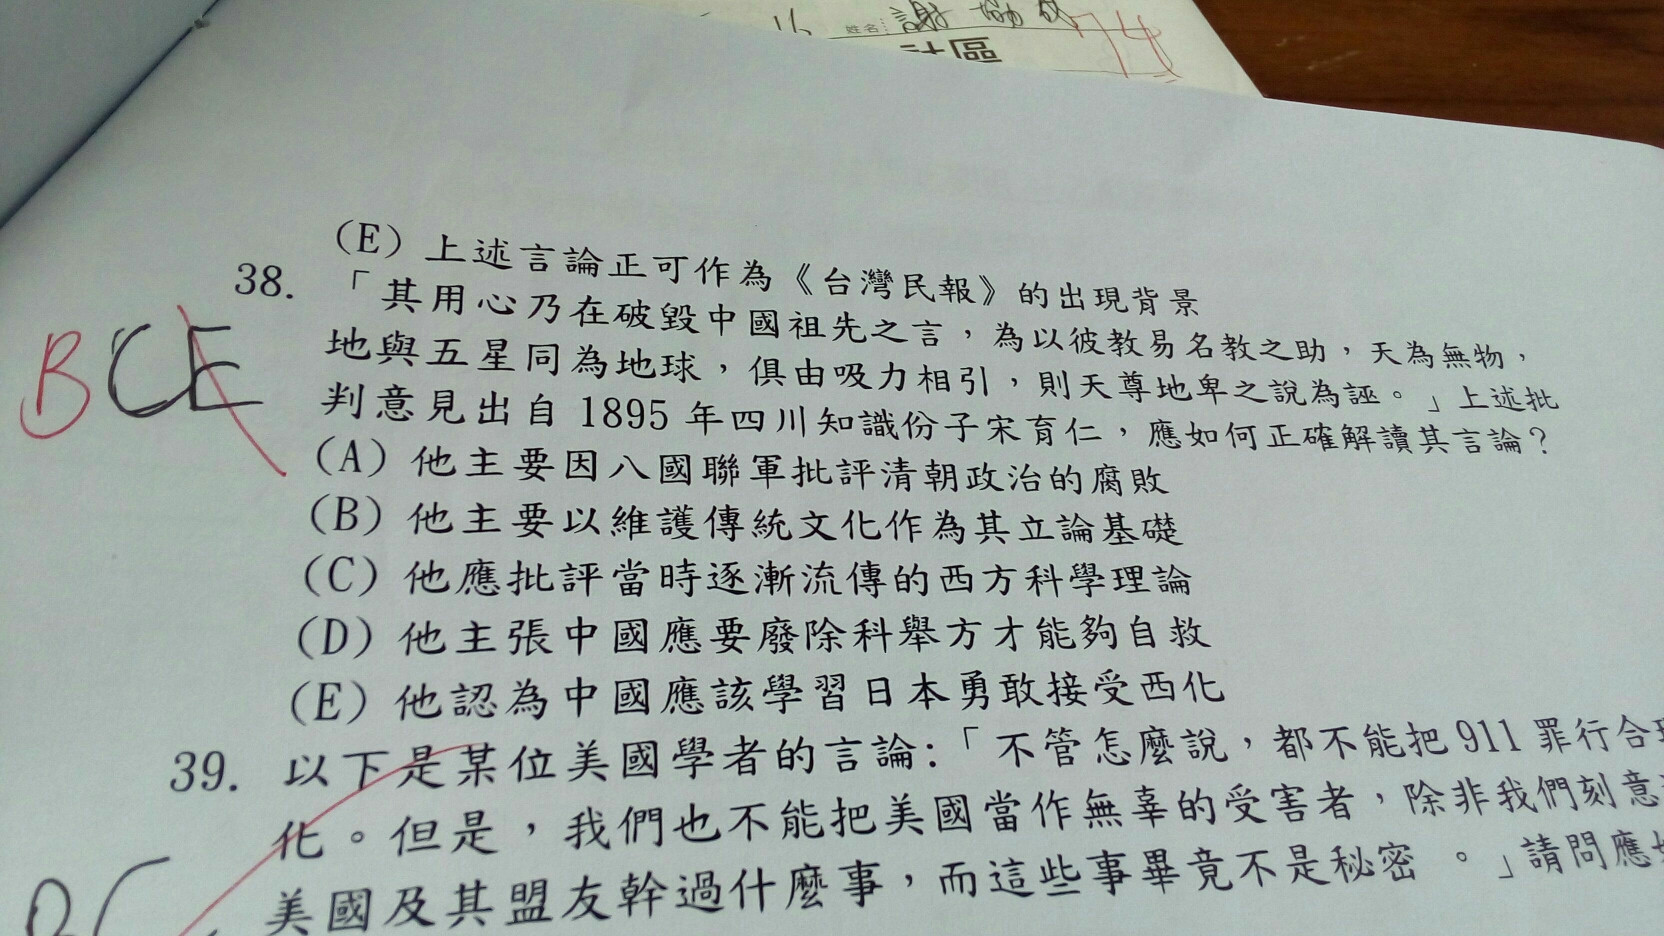 姓名: 謝
74
(E) 上述言論正可作為《台灣民報》的出現背景
38. 「其用心乃在破毀中國祖先之言，為以彼教易名教之助，天為無物，
地與五星同為地球，俱由吸力相引，則天尊地卑之說為誣。」上述批
判意見出自 1895 年四川知識份子宋育仁，應如何正確解讀其言論？
BCE
(A) 他主要因八國聯軍批評清朝政治的腐敗
(B) 他主要以維護傳統文化作為其立論基礎
(C) 他應批評當時逐漸流傳的西方科學理論
(D) 他主張中國應要廢除科舉方才能夠自救
(E) 他認為中國應該學習日本勇敢接受西化
39. 以下是某位美國學者的言論：「不管怎麼說，都不能把 911 罪行合理
化。但是，我們也不能把美國當作無辜的受害者，除非我們刻意
美國及其盟友幹過什麼事，而這些事畢竟不是秘密 。」請問應